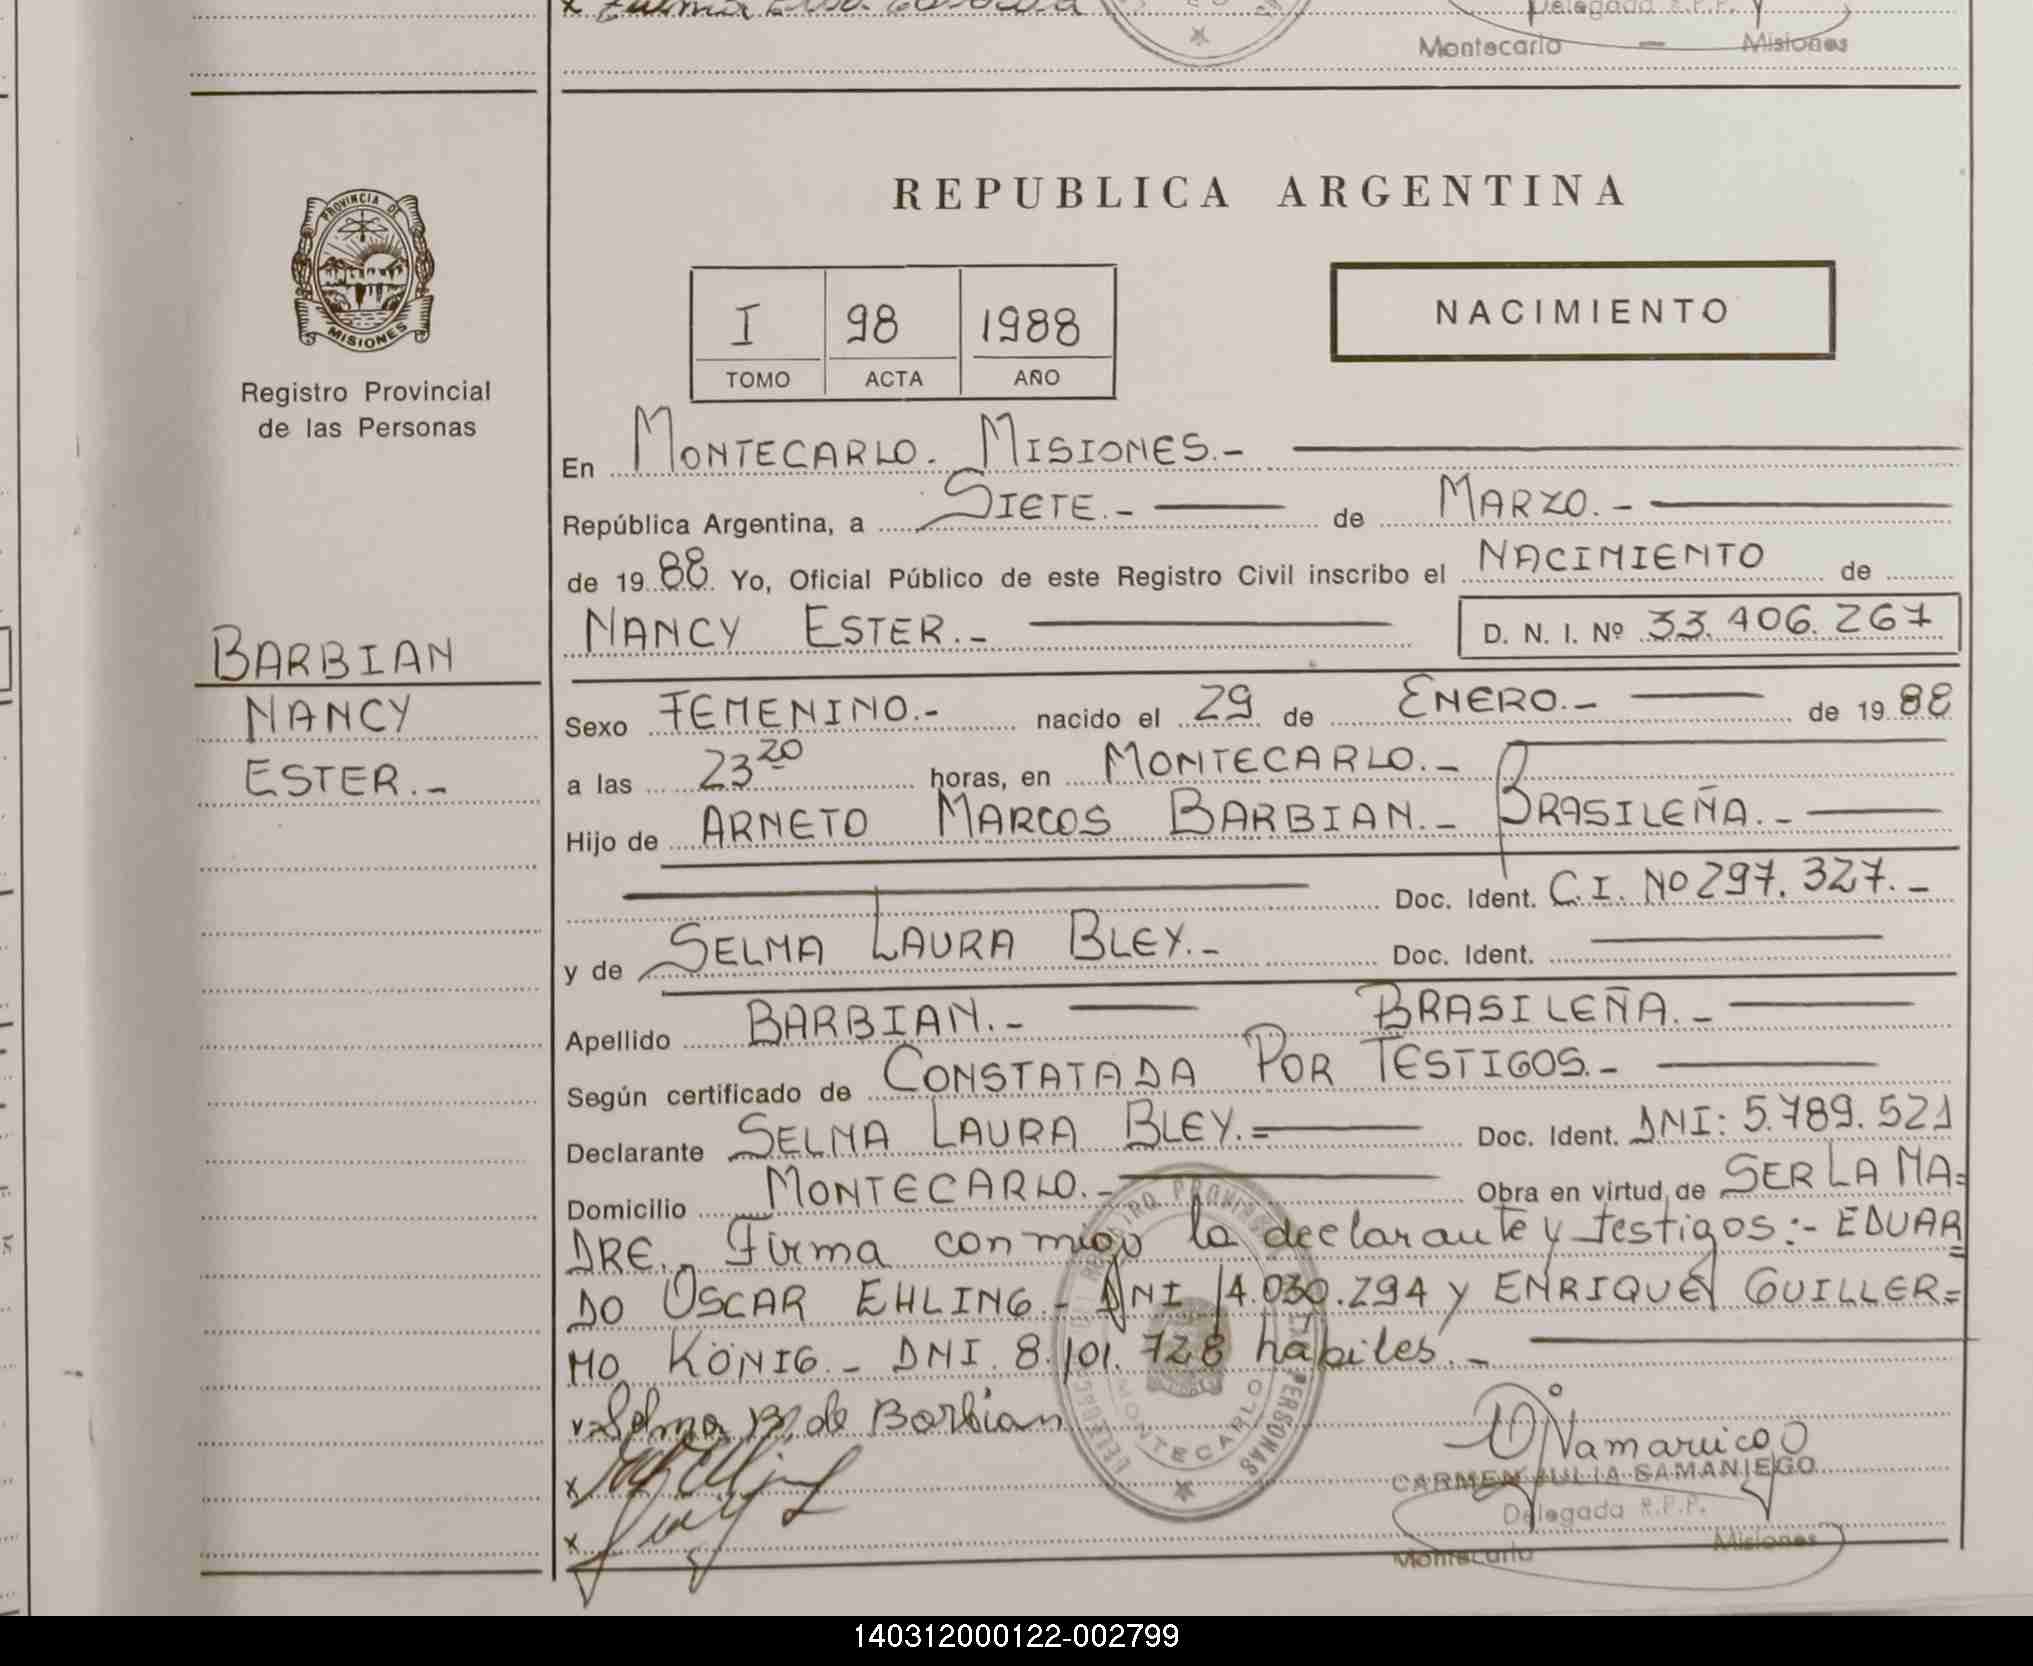 Delegada R.P.P.
Montecarlo — Misiones
PROVINCIA DE
MISIONES
Registro Provincial
de las Personas
REPUBLICA ARGENTINA
I 98 1988
TOMO ACTA AÑO
NACIMIENTO
En MONTECARLO. MISIONES.-
República Argentina, a SIETE.- de MARZO.-
de 1988. Yo, Oficial Público de este Registro Civil inscribo el NACIMIENTO de
NANCY ESTER.- D. N. I. Nº 33.406.267
BARBIAN
NANCY
ESTER.-
Sexo FEMENINO.- nacido el 29 de ENERO.- de 1988
a las 23 20 horas, en MONTECARLO.-
Hijo de ARNETO MARCOS BARBIAN.- BRASILEÑA.-
Doc. Ident. C.I. Nº 297.327.-
y de SELMA LAURA BLEY.- Doc. Ident.
Apellido BARBIAN.- BRASILEÑA.-
Según certificado de CONSTATADA POR TESTIGOS.-
Declarante SELMA LAURA BLEY.= Doc. Ident. DNI: 5.789.521
Domicilio MONTECARLO.- Obra en virtud de SER LA MA=
DRE.- Firma conmigo la declarante y testigos:- EDUAR
DO OSCAR EHLING.- DNI 14.030.294 y ENRIQUE GUILLER=
MO KÖNIG.- DNI. 8.101.728 hábiles.-
Selma B. de Barbian
MONTECARLO
PERSONAS
CARMEN JULIA SAMANIEGO
Delegada R.P.P.
Montecarlo Misiones
140312000122-002799